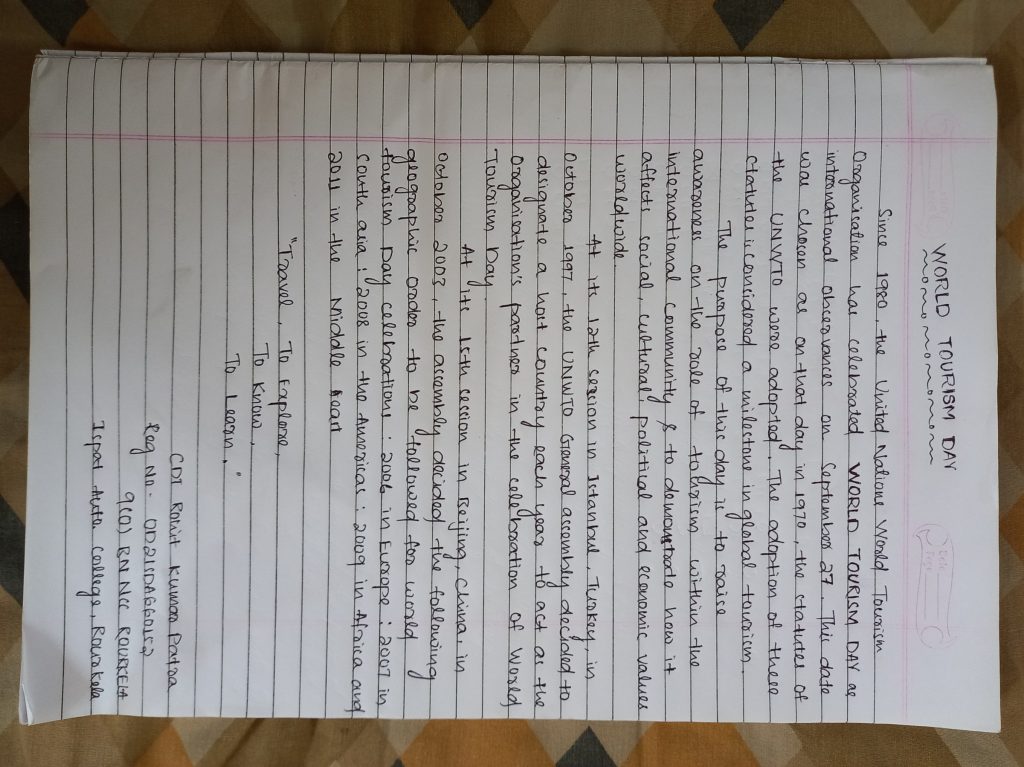 WORLD TOURISM DAY
Since 1980, the United Nations World Tourism
Organisation has celebrated WORLD TOURISM DAY as
international observances on September 27. This date
was chosen as on that day in 1970, the statutes of
the UNWTO were adopted. The adoption of these
statutes is considered a milestone in global tourism.
The purpose of this day is to raise
awareness on the role of tourism within the
international community & to demonstrate how it
affects social, cultural, political and economic values
worldwide.
At its 12th session in Istanbul, Turkey, in
October 1997, the UNWTO General assembly decided to
designate a host country each year to act as the
Organisation's partner in the celebration of World
Tourism Day.
At its 15th session in Beijing, China, in
October 2003, the assembly decided the following
geographic order to be followed for world
tourism Day celebrations : 2006 in Europe : 2007 in
South asia : 2008 in the Americas : 2009 in Africa and
2011 in the Middle heart
"Travel, To Explore,
To Know,
To Learn."
CDT Rohit Kumar Patra
Reg No- OD21UDA660152
9(O) BN NCC ROURKELA
Ispat Auto College, Rourkela